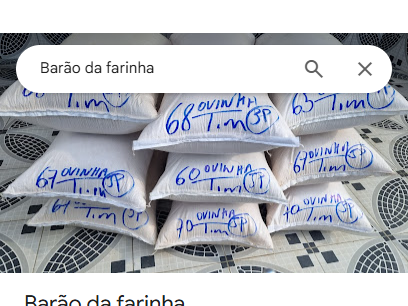 Barão da farinha
68 OVINHA
T.m JP
63
T.m
67 OVINHA
T.m JP
60 OVINHA
T.m JP
67 OVINHA
T.m JP
67
T.m JP
70 OVINHA
T.m JP
70 OVINHA
T.m JP
Barão da farinha